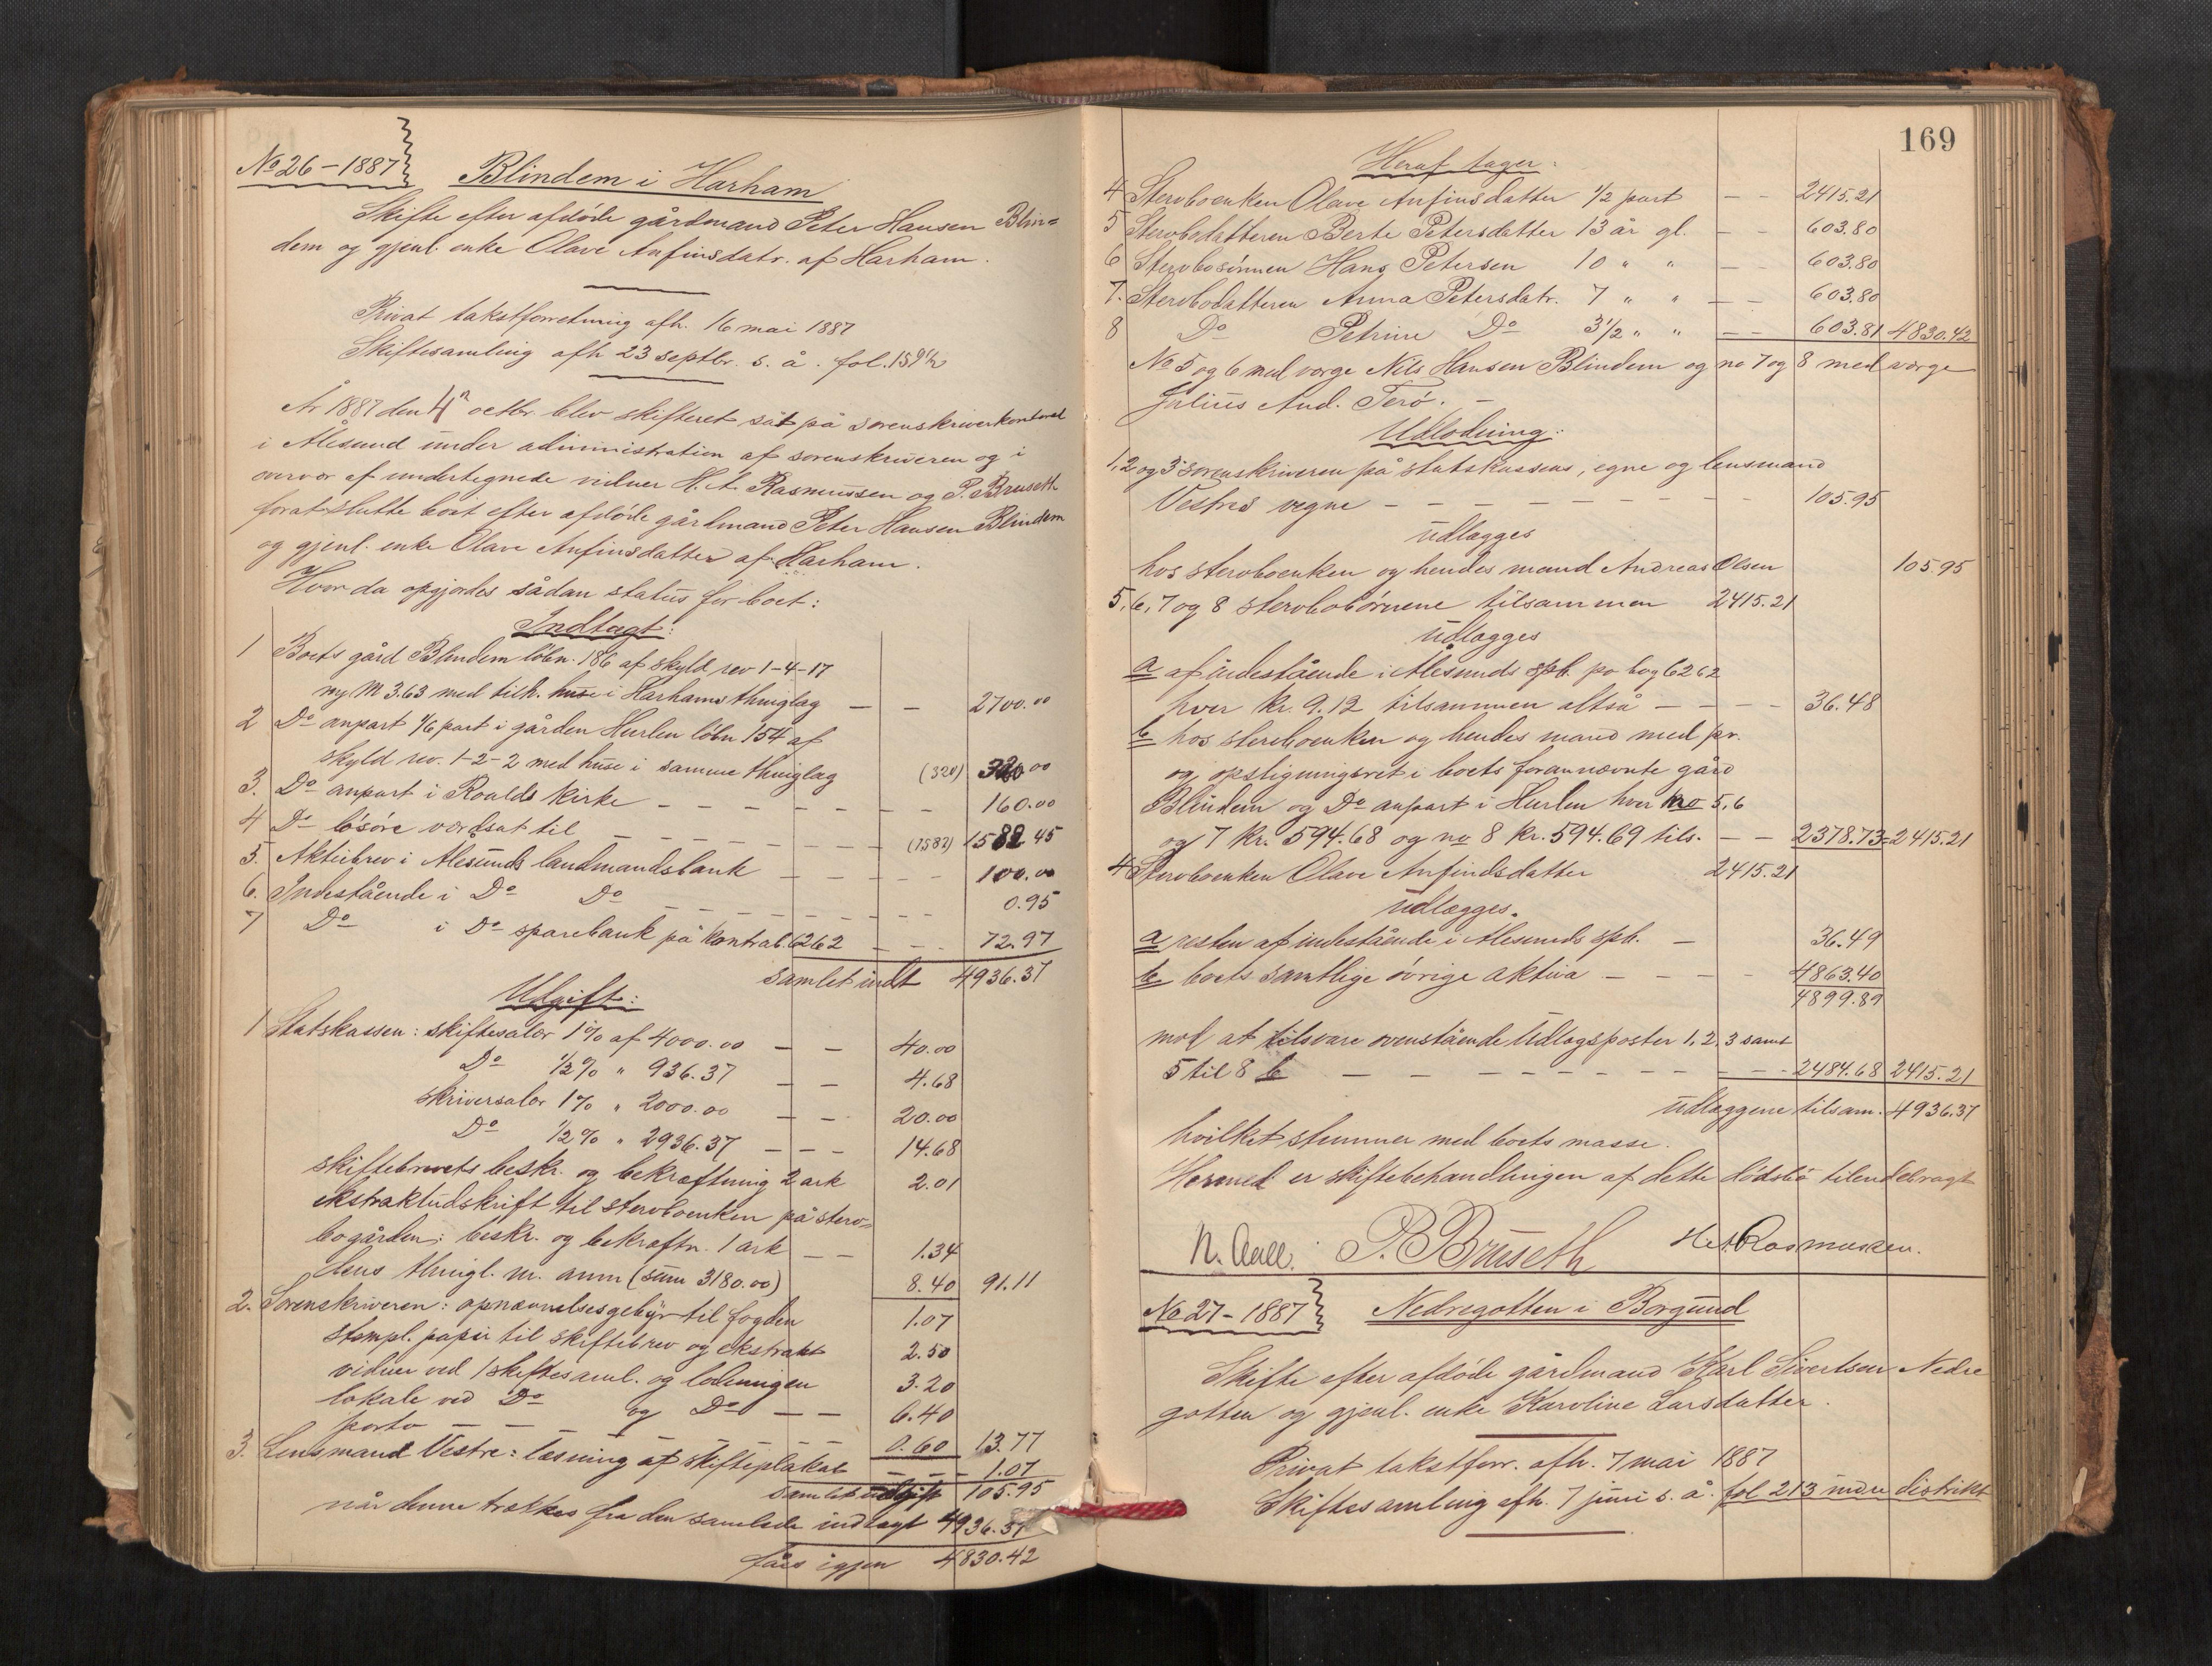 No 26 – 1887
Blindem i Harham
Skifte efter afdøde gårdmand Peter Hansen Blin=
dem og gjenl. enke Olave Anfinsdatr. af Harham.
Privat takstforretning afh. 16 mai 1887
Skiftesamling afh 23 septbr. s. å. fol. 159½
År 1887 den 4n octbr. blev skifteret sat på sorenskriverkontoret
i Ålesund under administration af sorenskriveren og i
overvær af undertegnede vidner H. A. Rasmussen og P. Bruseth
forat slutte boet efter afdøde gårdmand Peter Hansen Blindem
og gjenl. enke Olave Anfinsdatter af Harham.
Hvor da opgjordes sådan status for boet:
Indtægt:
1 Boets gård Blindem løbn. 186 af skyld rev 1-4-17
ny M 3.63 med tilh. huse i Harhams thinglag — — 2700.00
2 Do anpart 1/6 part i gården Hurlen løbn 154 af
skyld rev. 1-2-2 med huse i samme thinglag (320) 320 00
3. Do anpart i Roalds kirke — — — — — — 160.00
4 Do løsøre værdsat til — — — — — (1582) 1582 45
5. Aktiebrev i Ålesunds landmandsbank — — — — — 100.00
6. Indestående i Do Do — — — — — — — 0.95
7 Do i Do sparebank på kontrab 6262 — — 72.97
samlet indt 4936.37
Udgift:
1 Statskassen: skiftesalær 1% af 4000.00 — — 40.00
Do ½% " 936.37 — — 4.68
skriversalær 1% " 2000.00 — — 20.00
Do ½% " 2936.37 — — — 14.68
skiftebrevets beskr. og bekræftning 2 ark 2.01
ekstraktudskrift til stervboenken på sterv=
bogården: beskr. og bekræftn. 1 ark — — 1.34
dens thingl. m. anm (sum 3180.00) 8.40 91.11
2. Sorenskriveren: opnævnelsesgebyr til fogden 1.07
stempl. papir til skiftebrev og ekstrakt 2.50
vidner ved 1 skiftesaml. og lodningen 3.20
lokale ved Do og Do — — 6.40
porto — — — — — — 0.60 13.77
3. Lensmand Vestre: læsning af skifteplakat — — — 1.07
samlet udgift 105.95
når denne trækkes fra den samlede indtægt 4936.37
fåes igjen 4830.42
169
Heraf tager:
4 Stervboenken Olave Anfinsdatter 1/2 part — — 2415.21
5 Stervbodatteren Berte Petersdatter 13 år gl. — — 603.80
6 Stervbosønnen Hans Petersen 10 " " — — 603.80
7. Stervbodatteren Anna Petersdatr. 7 " " — — 603.80
8 Do Petrine Do 3½ " " — — 603.81 4830.42
No 5 og 6 med værge Nils Hansen Blindem og no 7 og 8 med værge
Julius And. Terø. –
Udlodning:
1, 2 og 3 sorenskriveren på statskassens, egne og lensmand
Vestres vegne — — — — — — — 105.95
udlægges
hos stervboenken og hendes mand Andreas Olsen 105 95
5, 6, 7 og 8 stervbobørnene tilsammen 2415.21
udlægges
a af indestående i Ålesunds spb. po bog 6262
hver kr. 9.12 tilsammen altså — — — — 36.48
b hos stervboenken og hendes mand med pr.
og opsligningsret i boets forannævnte gård
Blindem og Do anpart i Hurlen hver no 5, 6
og 7 kr. 594.68 og no 8 kr. 594.69 tils. — — 2378.73 2415.21
4 Stervboenken Olave Anfindsdatter 2415.21
udlægges.
a resten af indestående i Ålesunds spb. — 36.49
b boets samtlige øvrige aktiva — — — — 4863.40
4899.89
mod at tilsvare ovenstående Udlægsposter 1, 2, 3 samt
5 til 8 b — — — — — — — — 2484.68 2415.21
udlæggene tilsam. 4936.37
hvilket stemmer med boets masse.
Hermed er skiftebehandlingen af dette dødsbo tilendebragt
N. Aall. P. Bruseth H. A. Rasmussen.
No 27 – 1887
Nedregotten i Borgund
Skifte efter afdøde gårdmand Karl Sivertsen Nedre
gotten og gjenl. enke Karoline Larsdatter.
Privat takstforr. afh. 7 mai 1887
Skiftesamling afh. 7 juni s. å. fol 213 indre distrikt